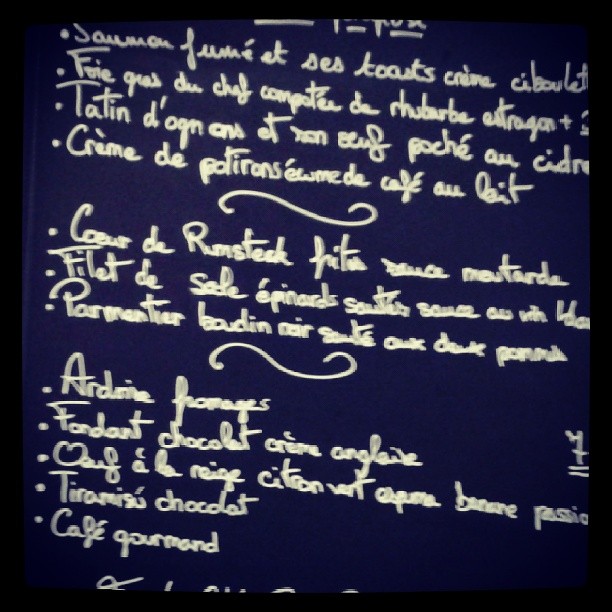 • Saumon fumé et ses toasts crème ciboulet
• Foie gras du chef compotée de rhubarbe estragon +
• Tatin d'ognons et son oeuf poché au cidre
• Crème de potirons écume de café au lait
• Coeur de Rumsteck frites sauce moutarde
• Filet de Sole épinards sautés sauce au vin bla
• Parmentier boudin noir sauté aux deux pommes
• Ardoise fromages
• Fondant chocolat crème anglaise
7
• Oeuf à la neige citron vert banane passio
• Tiramisù chocolat
• Café gourmand